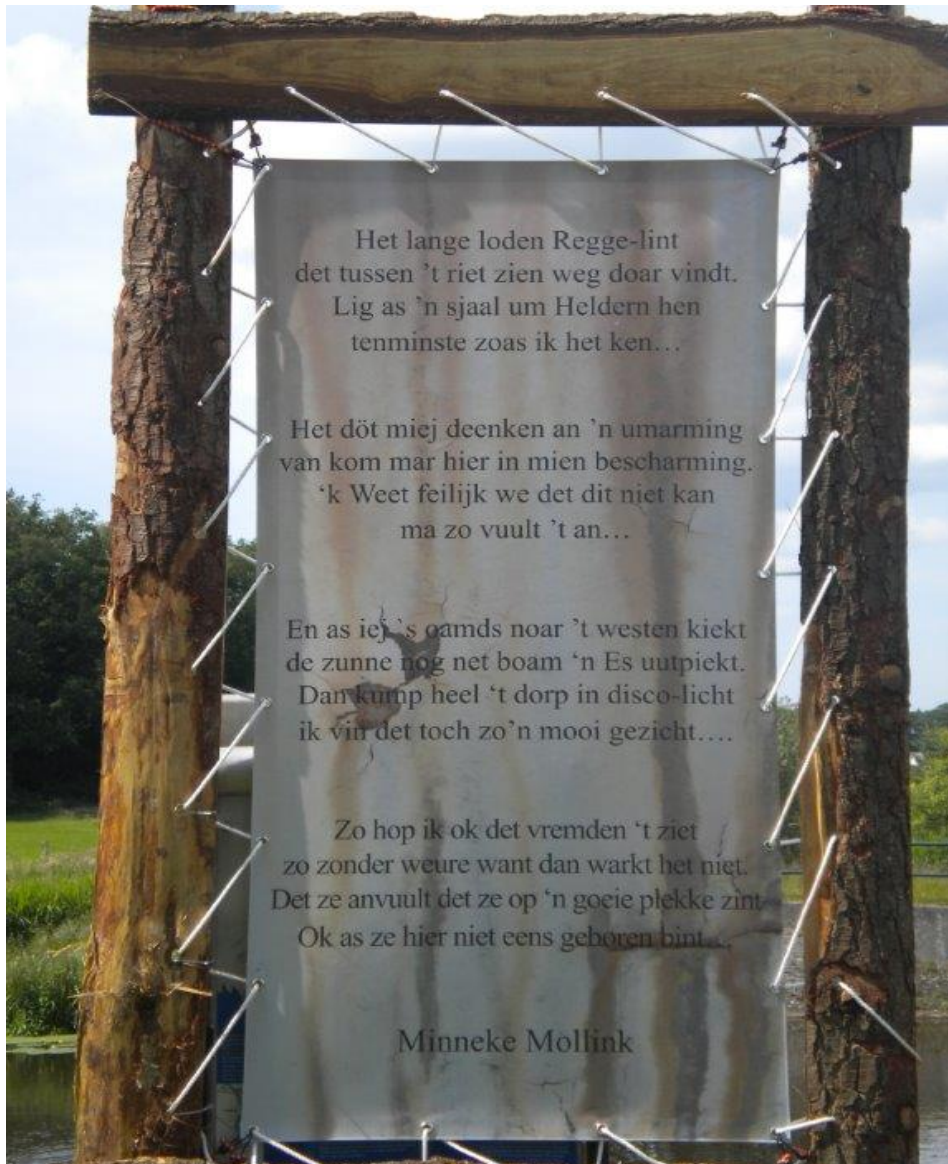 Het lange loden Regge-lint
det tussen ’t riet zien weg doar vindt.
Lig as ’n sjaal um Heldern hen
tenminste zoas ik het ken…
Het döt miej deenken an ’n umarming
van kom mar hier in mien bescharming.
‘k Weet feilijk we det dit niet kan
ma zo vuult ’t an…
En as iej ‘s oamds noar ’t westen kiekt
de zunne nog net boam ‘n Es uutpiekt.
Dan kump heel ‘t dorp in disco-licht
ik vin det toch zo’n mooi gezicht….
Zo hop ik ok det vremden ‘t ziet
zo zonder weure want dan warkt het niet.
Det ze anvuult det ze op ‘n goeie plekke zint
Ok as ze hier niet eens geboren bint….
Minneke Mollink